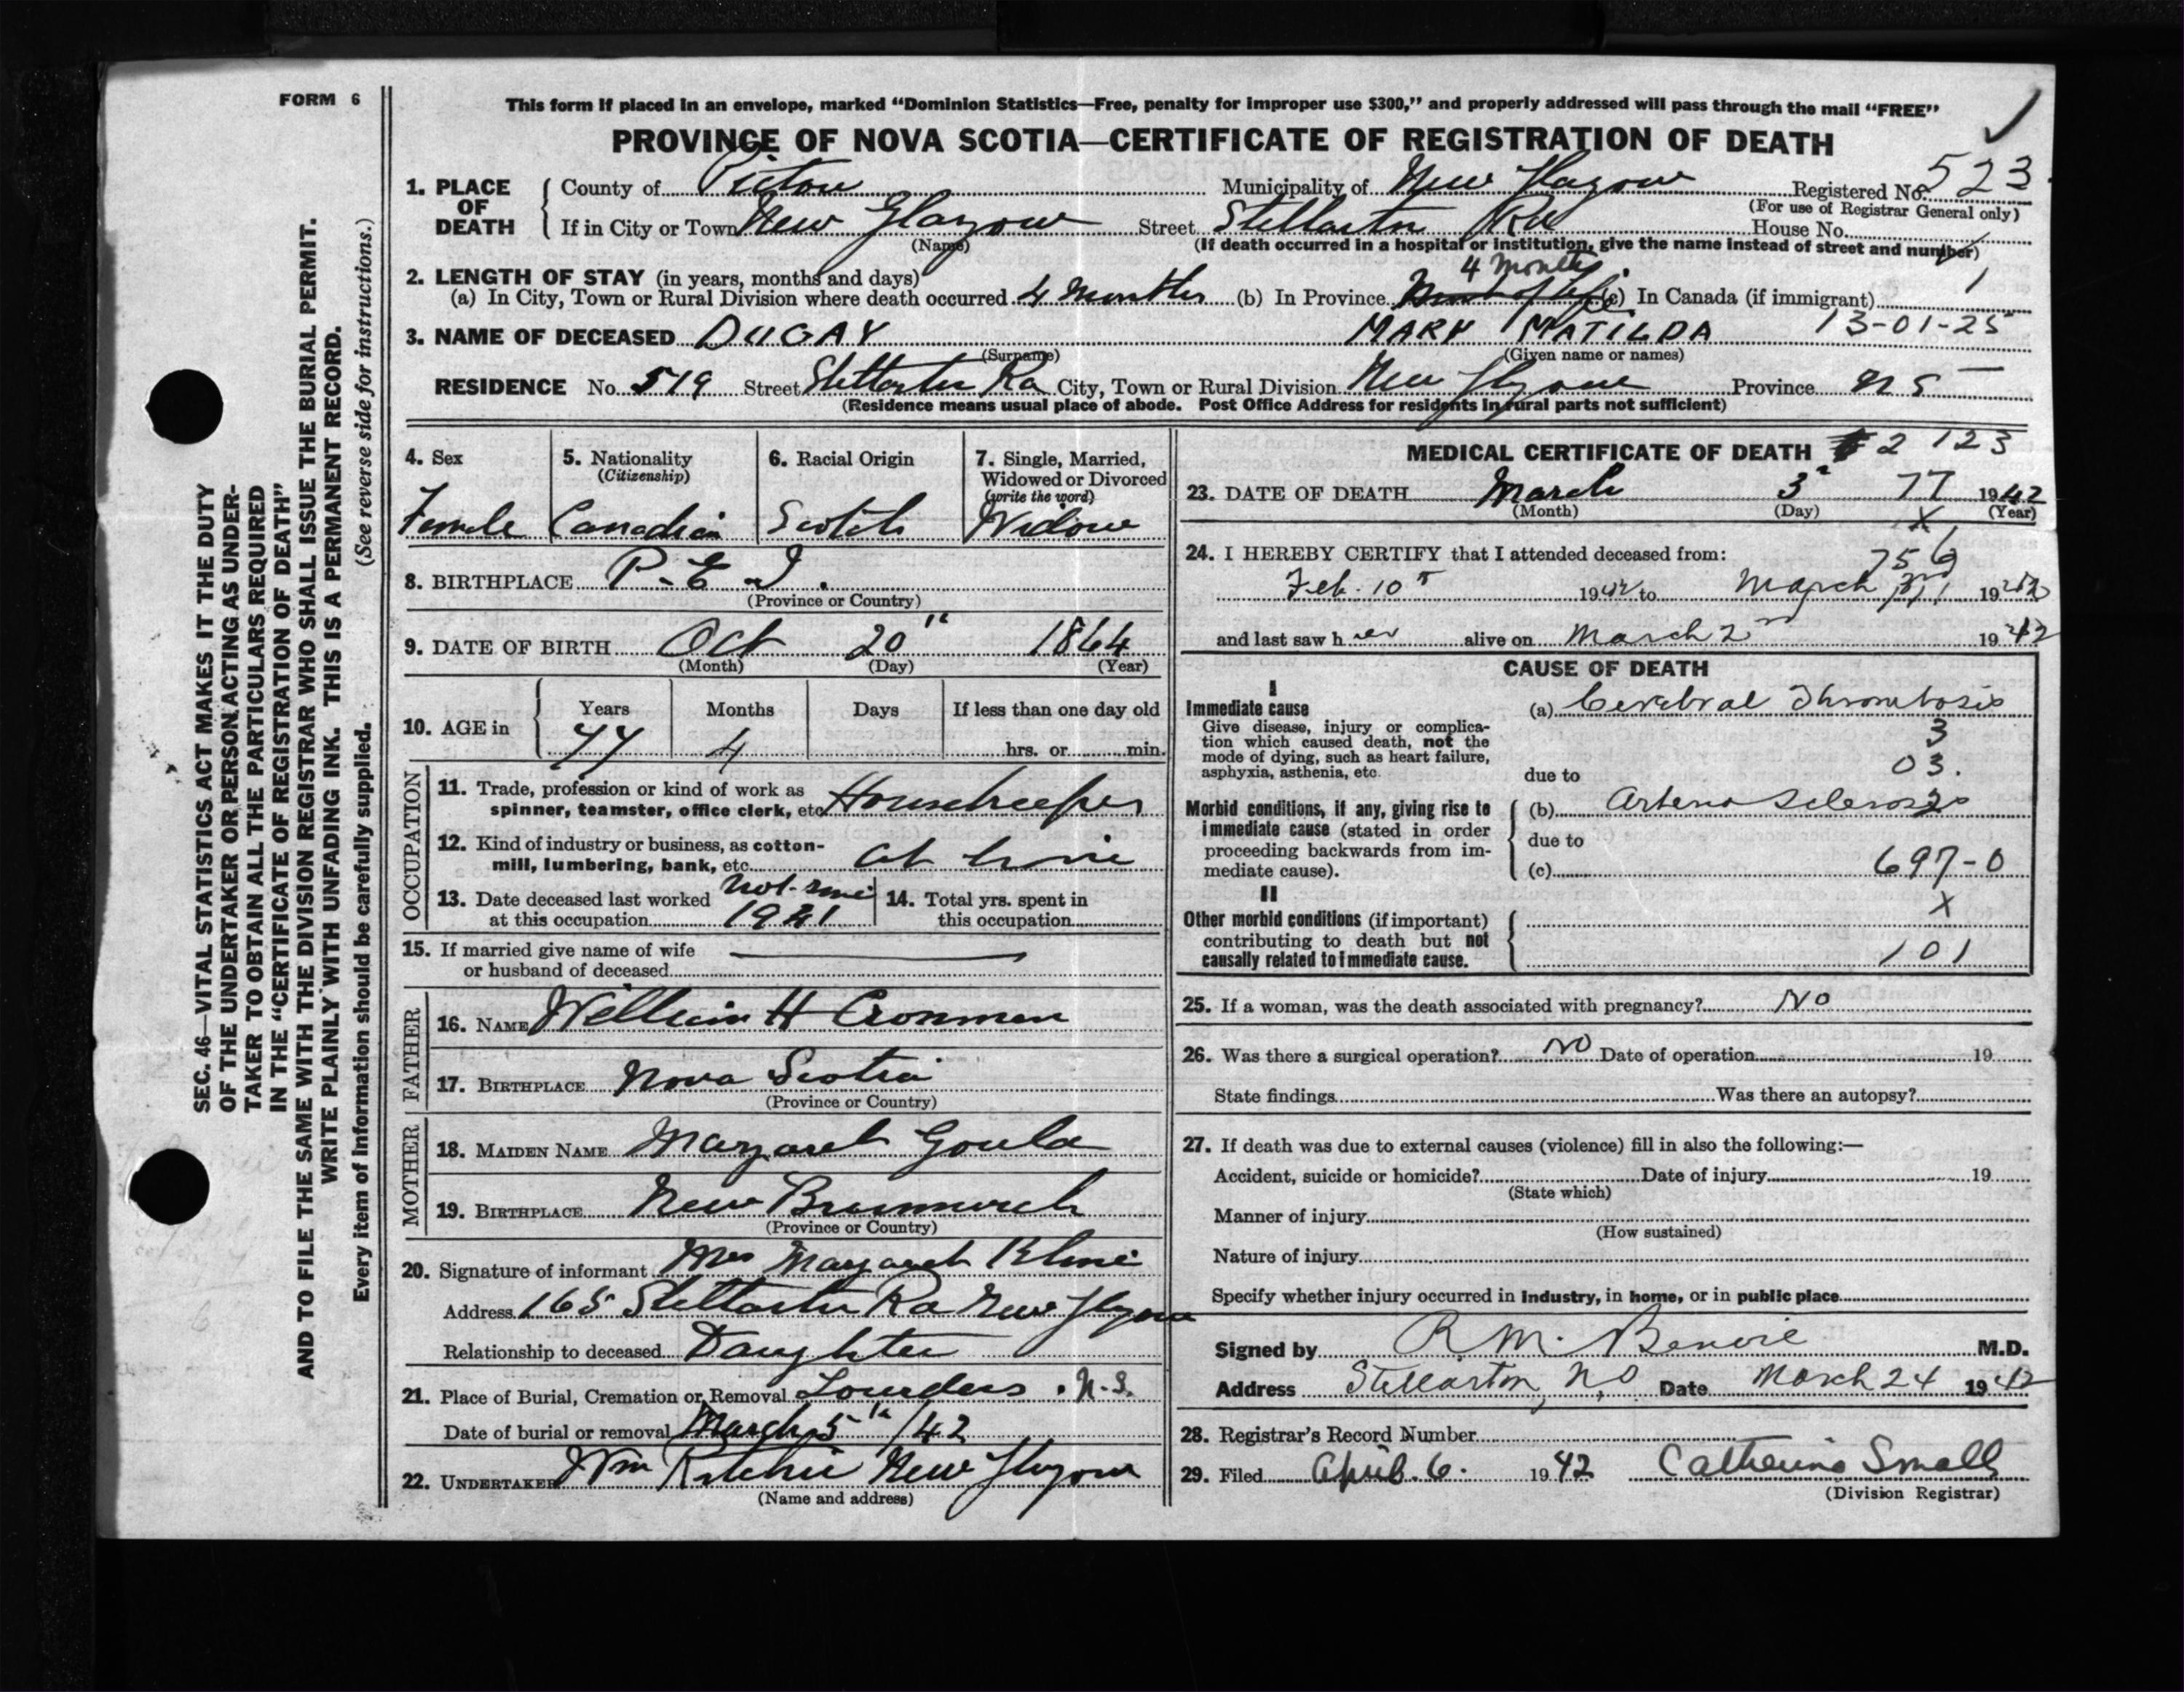 FORM 6
This form if placed in an envelope, marked "Dominion Statistics—Free, penalty for improper use $300," and properly addressed will pass through the mail "FREE"
PROVINCE OF NOVA SCOTIA—CERTIFICATE OF REGISTRATION OF DEATH
1. PLACE OF DEATH County of Pictou Municipality of New Glasgow Registered No. 523
(For use of Registrar General only)
If in City or Town New Glasgow Street Stellarton Rd House No.
(Name) (If death occurred in a hospital or institution, give the name instead of street and number)
2. LENGTH OF STAY (in years, months and days)
4 months
(a) In City, Town or Rural Division where death occurred 4 months (b) In Province (c) In Canada (if immigrant) 1
3. NAME OF DECEASED DUGAY MARY MATILDA 13-01-25
(Surname) (Given name or names)
RESIDENCE No. 519 Street Stellarton Rd City, Town or Rural Division New Glasgow Province N S
(Residence means usual place of abode. Post Office Address for residents in rural parts not sufficient)
4. Sex 5. Nationality (Citizenship) 6. Racial Origin 7. Single, Married, Widowed or Divorced (write the word)
Female Canadian Scotch Widow
8. BIRTHPLACE P.E.I.
(Province or Country)
9. DATE OF BIRTH Oct 20th 1864
(Month) (Day) (Year)
10. AGE in Years Months Days If less than one day old
77 4 hrs. or min.
OCCUPATION
11. Trade, profession or kind of work as spinner, teamster, office clerk, etc. Housekeeper
12. Kind of industry or business, as cotton-mill, lumbering, bank, etc. at home
13. Date deceased last worked at this occupation not since 1921
14. Total yrs. spent in this occupation
15. If married give name of wife or husband of deceased
FATHER
16. NAME William H Cronman
17. BIRTHPLACE Nova Scotia
(Province or Country)
MOTHER
18. MAIDEN NAME Margaret Gould
19. BIRTHPLACE New Brunswick
(Province or Country)
20. Signature of informant Mrs Margaret Kline
Address 165 Stellarton Rd New Glasgow
Relationship to deceased Daughter
21. Place of Burial, Cremation or Removal Lourdes. N.S.
Date of burial or removal March 5th/42
22. UNDERTAKER Wm Ritchie New Glasgow
(Name and address)
MEDICAL CERTIFICATE OF DEATH 2 123
23. DATE OF DEATH March 3 77 1942
(Month) (Day) (Year)
X
24. I HEREBY CERTIFY that I attended deceased from:
756
Feb. 10 1942 to March 1942
and last saw her alive on March 2nd 1942
CAUSE OF DEATH
I
Immediate cause
Give disease, injury or complication which caused death, not the mode of dying, such as heart failure, asphyxia, asthenia, etc.
(a) Cerebral Thrombosis
3
03.
due to
Morbid conditions, if any, giving rise to immediate cause (stated in order proceeding backwards from immediate cause).
(b) Arterio Sclerosis
due to
(c) 697-0
II
X
Other morbid conditions (if important) contributing to death but not causally related to immediate cause.
101
25. If a woman, was the death associated with pregnancy? No
26. Was there a surgical operation? No Date of operation 19
State findings Was there an autopsy?
27. If death was due to external causes (violence) fill in also the following:—
Accident, suicide or homicide? Date of injury 19
(State which)
Manner of injury
(How sustained)
Nature of injury
Specify whether injury occurred in industry, in home, or in public place
Signed by R. M. Benvie M.D.
Address Stellarton, N.S Date March 24 1942
28. Registrar's Record Number
29. Filed April. 6. 1942 Catherine Small
(Division Registrar)
SEC. 46—VITAL STATISTICS ACT MAKES IT THE DUTY
OF THE UNDERTAKER OR PERSON ACTING AS UNDER-
TAKER TO OBTAIN ALL THE PARTICULARS REQUIRED
IN THE "CERTIFICATE OF REGISTRATION OF DEATH"
AND TO FILE THE SAME WITH THE DIVISION REGISTRAR WHO SHALL ISSUE THE BURIAL PERMIT.
WRITE PLAINLY WITH UNFADING INK. THIS IS A PERMANENT RECORD.
Every item of information should be carefully supplied. (See reverse side for instructions.)